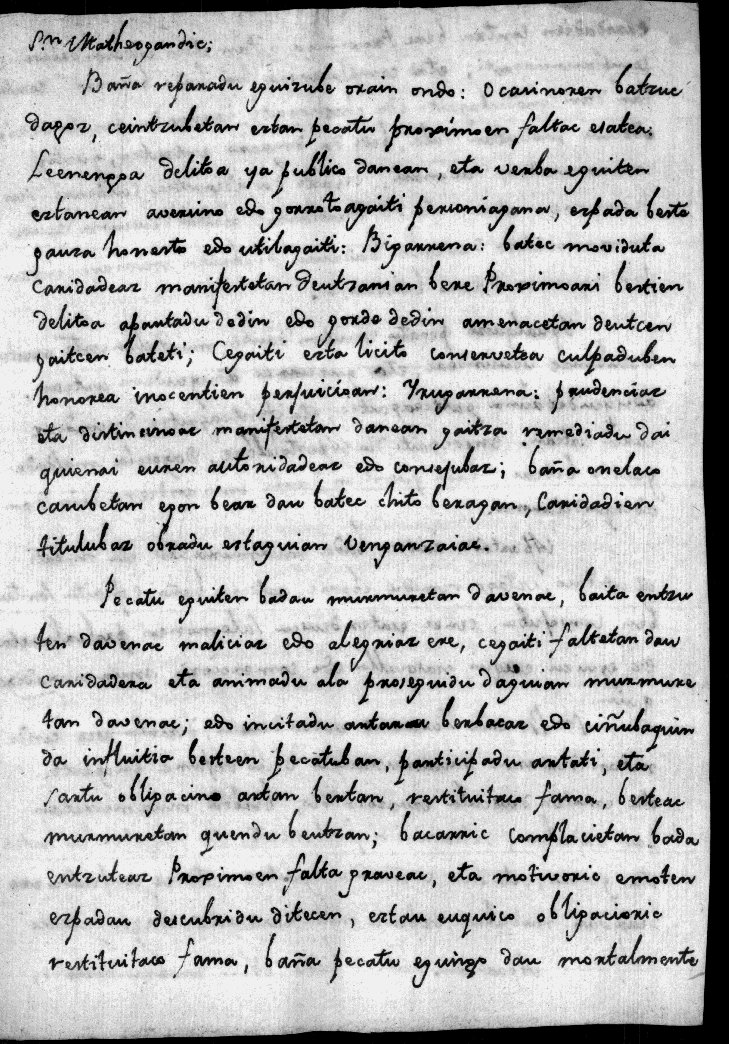 Sn Matheogandic;
Baña reparadu eguizube orain ondo: Ocasinoren batzuc
dagoz, ceintzubetan eztan pecatu proximoen faltac esatea.
Leenengoa delitoa ya publico danean, eta verba eguiten
eztanean aversino edo gorrotoagaiti personiagana, ezpada beste
gauza honesto edo utilagaiti: Bigarrena: batec moviduta
Caridadeaz manifestetan deutzanian bere Proximoari bestien
delitoa apartadu dedin edo gorde dedin amenacetan deutcen
gaitcen bateti; Cegaiti ezta licito conservetea culpaduben
honorea inocentien perjuicioan: Yrugarrena: prudenciaz
eta distincinoaz manifestetan danean gaitza remediadu dai
quienai euren autoridadeaz edo consejubaz; baña onelaco
casubetan egon bear dau batec chito beragan, Caridadien
titulubaz obradu eztaguian Venganzaiac.
Pecatu eguiten badau murmuretan davenac, baita entzu
ten davenac maliciaz edo alegriaz ere, cegaiti faltetan dau
caridadera eta animadu ala proseguidu daguian murmure
tan davenac; edo incitadu berbacaz edo ciñubaquin
da influitia besteen pecatuban, participadu artati, eta
sartu obligacino artan bertan, restituitaco fama, besteac
murmuretan quendu beutzan; bacarric complacietan bada
entzuteaz Proximoen falta graveac, eta motivoric emoten
ezpadau descubridu ditecen, eztau euquico obligacioric
restituitaco fama, baña pecatu eguingo dau mortalmente